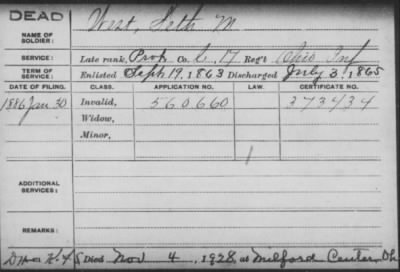 DEAD West, Seth M
NAME OF SOLDIER:
SERVICE: Late rank, Co. 17 Reg't Ohio Inf
TERM OF SERVICE: Enlisted Sept 19, 1863 Discharged July 3, 1865
DATE OF FILING. CLASS. APPLICATION NO. LAW. CERTIFICATE NO.
1886 Jan. 30 Invalid, 560660 373434
Widow,
Minor,
1
ADDITIONAL SERVICES:
REMARKS:
Died Nov 4, 1928, at Milford Center, Oh